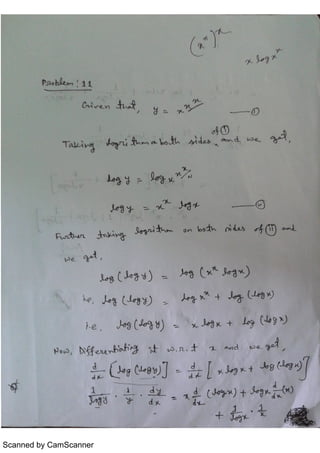 (x^x)^x
x log x^x
Problem : 11
Given that, y = x^x^x —— (i)
Taking logrithm on both sides of (i) and we get,
log y = log x^x^x
log y = x^x log x —— (ii)
Further taking logrithm on both sides of (ii) and
we get,
log (log y) = log (x^x log x)
i.e. log (log y) = log x^x + log (log x)
i.e. log (log y) = x log x + log (log x)
Now, Differentiating it w.r.t x and we get,
d/dx [log (log y)] = d/dx [x log x + log (log x)]
1/log y · 1/y · dy/dx = x d/dx (log x) + log x d/dx (x)
+ 1/log x · 1/x
Scanned by CamScanner